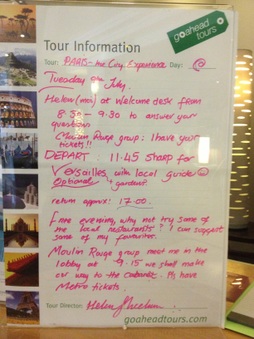 goahead
tours
Tour Information
Tour: PARIS - the City Experience Day:
Tuesday 9th July.
Helen (me) at Welcome desk from
8:30 - 9:30 to answer your
questions
Moulin Rouge group; I have your
tickets!!
DEPART: 11:45 sharp for
Versailles with local guide
Optional gardens.
return approx: 17.00.
Free evening, why not try some of
the local restaurants? I can suggest
some of my favourites.
Moulin Rouge group meet me in the
lobby at 9.15 we shall make
our way to the cabaret. Pls have
Metro tickets.
Tour Director: Helen
goaheadtours.com